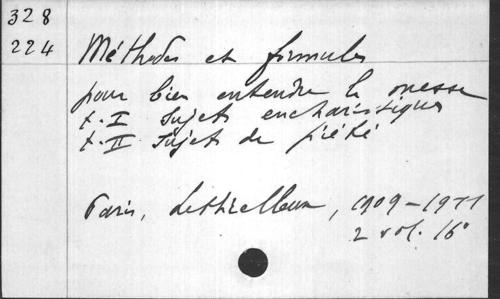 328
224
Méthodes et formules
pour bien entendre la messe
t. I Sujets eucharistiques
t. II Sujets de piété
Paris, Lethielleux, 1909-1911
2 vol. 16°